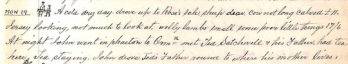 MON 19. A cold dry day drove up to Rose's sale, sheep dear, cow not long calved £11.
Jersey looking, not much to look at, welly lambs small some poor little things 17/6
At night John went in phaeton to Orm met Ted Satchwell & his Father had tea
here, Ted staying. John drove Ted's Father round to where his mother lives.